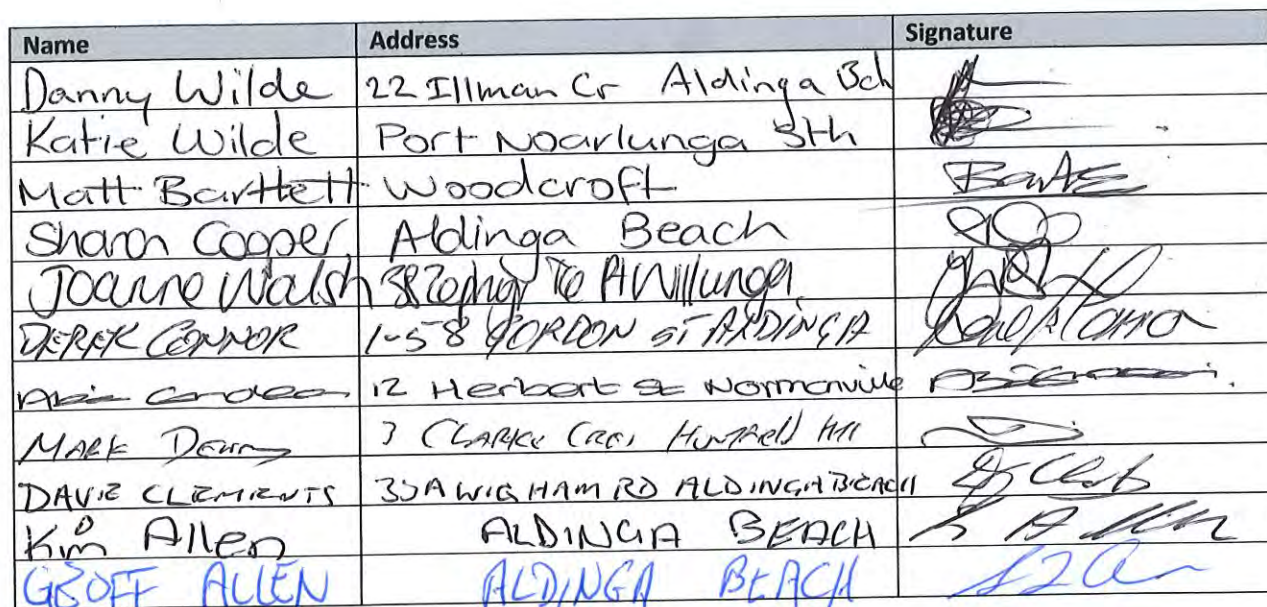 Name Address Signature
Danny Wilde 22 Illman Cr Aldinga Bch
Katie Wilde Port Noarlunga Sth
Matt Bartlett Woodcroft
Sharon Cooper Aldinga Beach
Joanne Walsh 38 Zephyr Tce Pt Willunga
DEREK CONNOR 1-58 GORDON ST ALDINGA
12 Herbert St Normanville
MARK 3 CLARKE CRES
DAVIE CLEMENTS WIGHAM RD ALDINGA BEACH
Kim Allen ALDINGA BEACH
GEOFF ALLEN ALDINGA BEACH